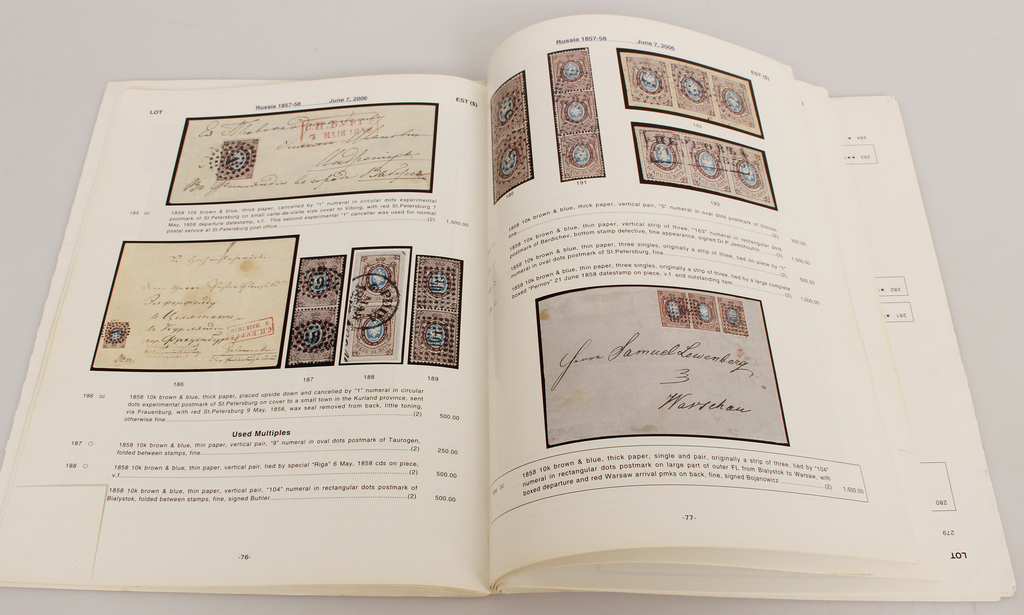 Russia 1857-58 June 7, 2006
LOT EST ($)
185 1858 10k brown & blue, thick paper, cancelled by "1" numeral in circular dots experimental
postmark of St.Petersburg on small carte-de-visite size cover to Viborg, with red St.Petersburg 7
May, 1858 departure datestamp, v.f. This second experimental "1" canceller was used for normal
postal service at St.Petersburg post office (2) 1,000.00
186
187
188
189
186 1858 10k brown & blue, thick paper, placed upside down and cancelled by "1" numeral in circular
dots experimental postmark of St.Petersburg on cover to a small town in the Kurland province, sent
via Frauenburg, with red St.Petersburg 9 May, 1858, wax seal removed from back, little toning,
otherwise fine (2) 500.00
Used Multiples
187 1858 10k brown & blue, thin paper, vertical pair, "9" numeral in oval dots postmark of Taurogen,
folded between stamps, fine (2) 250.00
188 1858 10k brown & blue, thin paper, vertical pair, tied by special "Riga" 6 May, 1858 cds on piece,
v.f. (2) 500.00
1858 10k brown & blue, thin paper, vertical pair, "104" numeral in rectangular dots postmark of
Bialystok, folded between stamps, fine, signed Buhler (2) 500.00
-76-
Russia 1857-58 June 7, 2006
EST ($)
190
191
192
193
1858 10k brown & blue, thick paper, vertical pair, "5" numeral in oval dots postmark of Vilnius,
fine (2) 250.00
1858 10k brown & blue, thin paper, vertical strip of three, "163" numeral in rectangular dots
postmark of Berdichev, bottom stamp defective, fine appearance, signed Dr.P.Jemchouhin (2) 1,000.00
1858 10k brown & blue, thin paper, three singles, originally a strip of three, tied on piece by "1"
numeral in oval dots postmark of St.Petersburg, fine (2) 500.00
1858 10k brown & blue, thin paper, three singles, originally a strip of three, tied by a large complete
boxed "Pernov" 21 June 1858 datestamp on piece, v.f. and outstanding item (2) 1,000.00
Herrn Samuel Lowenberg
3
Warschau
1858 10k brown & blue, thick paper, single and pair, originally a strip of three, tied by "104"
numeral in rectangular dots postmark on large part of outer FL from Bialystok to Warsaw, with
boxed departure and red Warsaw arrival pmks on back, fine, signed Bojanowicz (2) 1,500.00
-77-
283
282
281
280
279
LOT